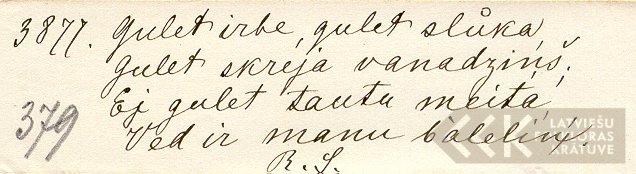 3877. Gulet irbe, gulet slůka,
gulet skrēja vanadziņš;
Ej gulet tautu meita,
Ved ir manu bāleliņu.
379
R. S.
LATVIEŠU
FOLKLORAS
KRĀTUVE